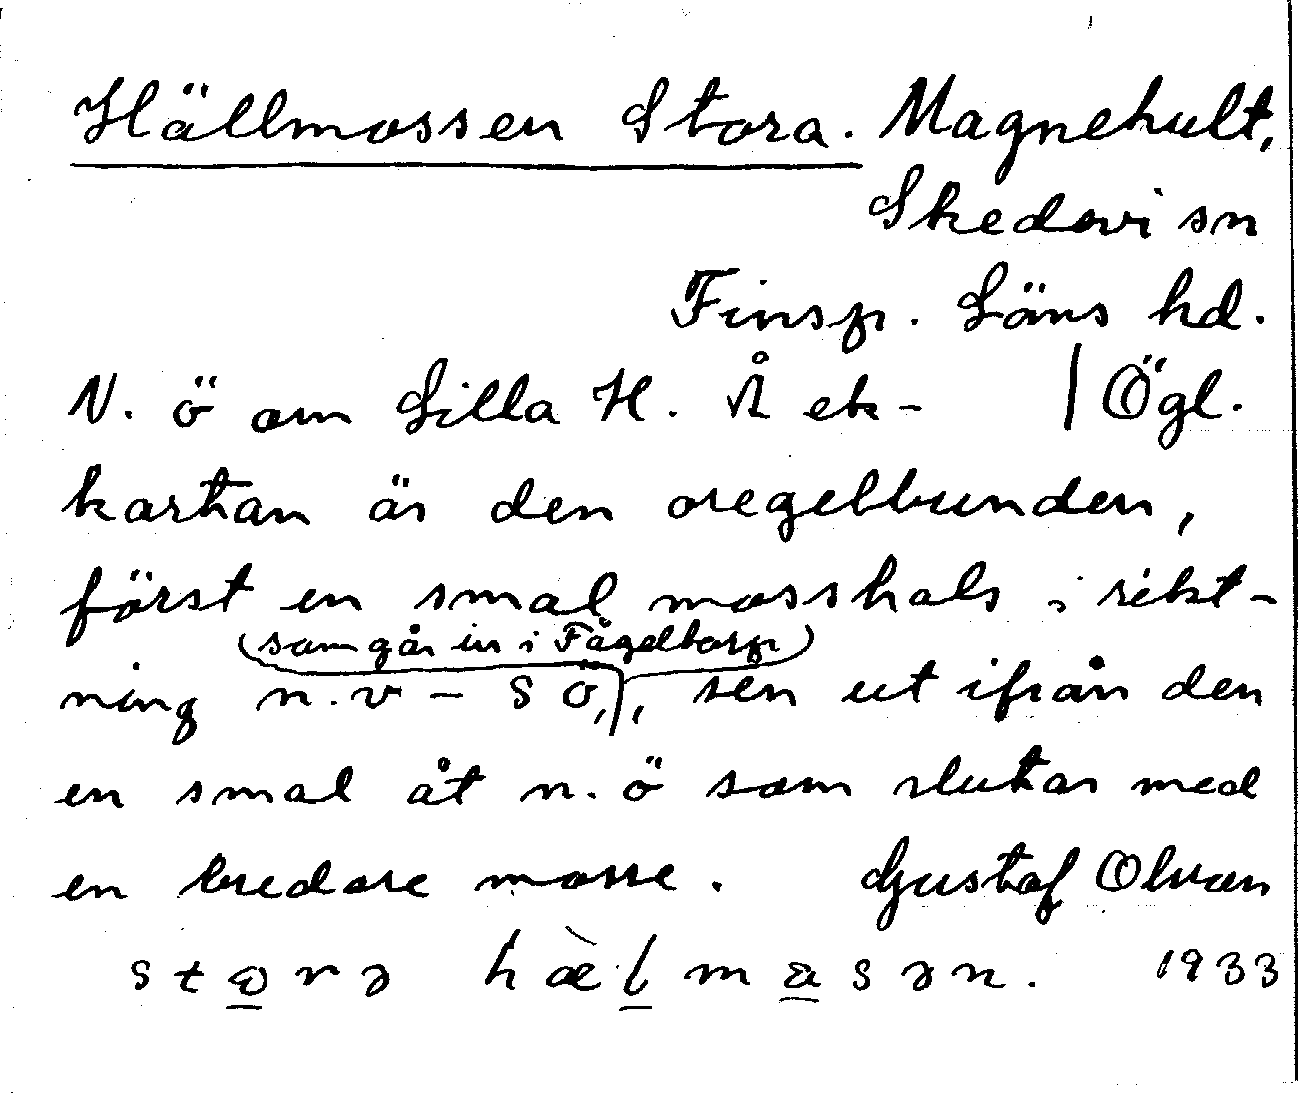 Hällmossen Stora. Magnehult,
Skedevi sn
Finsp. Läns hd.
N. ö om Lilla H. Å ek- | Ögl.
kartan är den oregelbunden,
först en smal mosshals i rikt-
(som går in i Fågeltorp)
ning n.v - s ö,), sen ut ifrån den
en smal åt n. ö som slutar med
en bredare mosse. Gustaf Olson
storə hæ̀lmasən. 1933